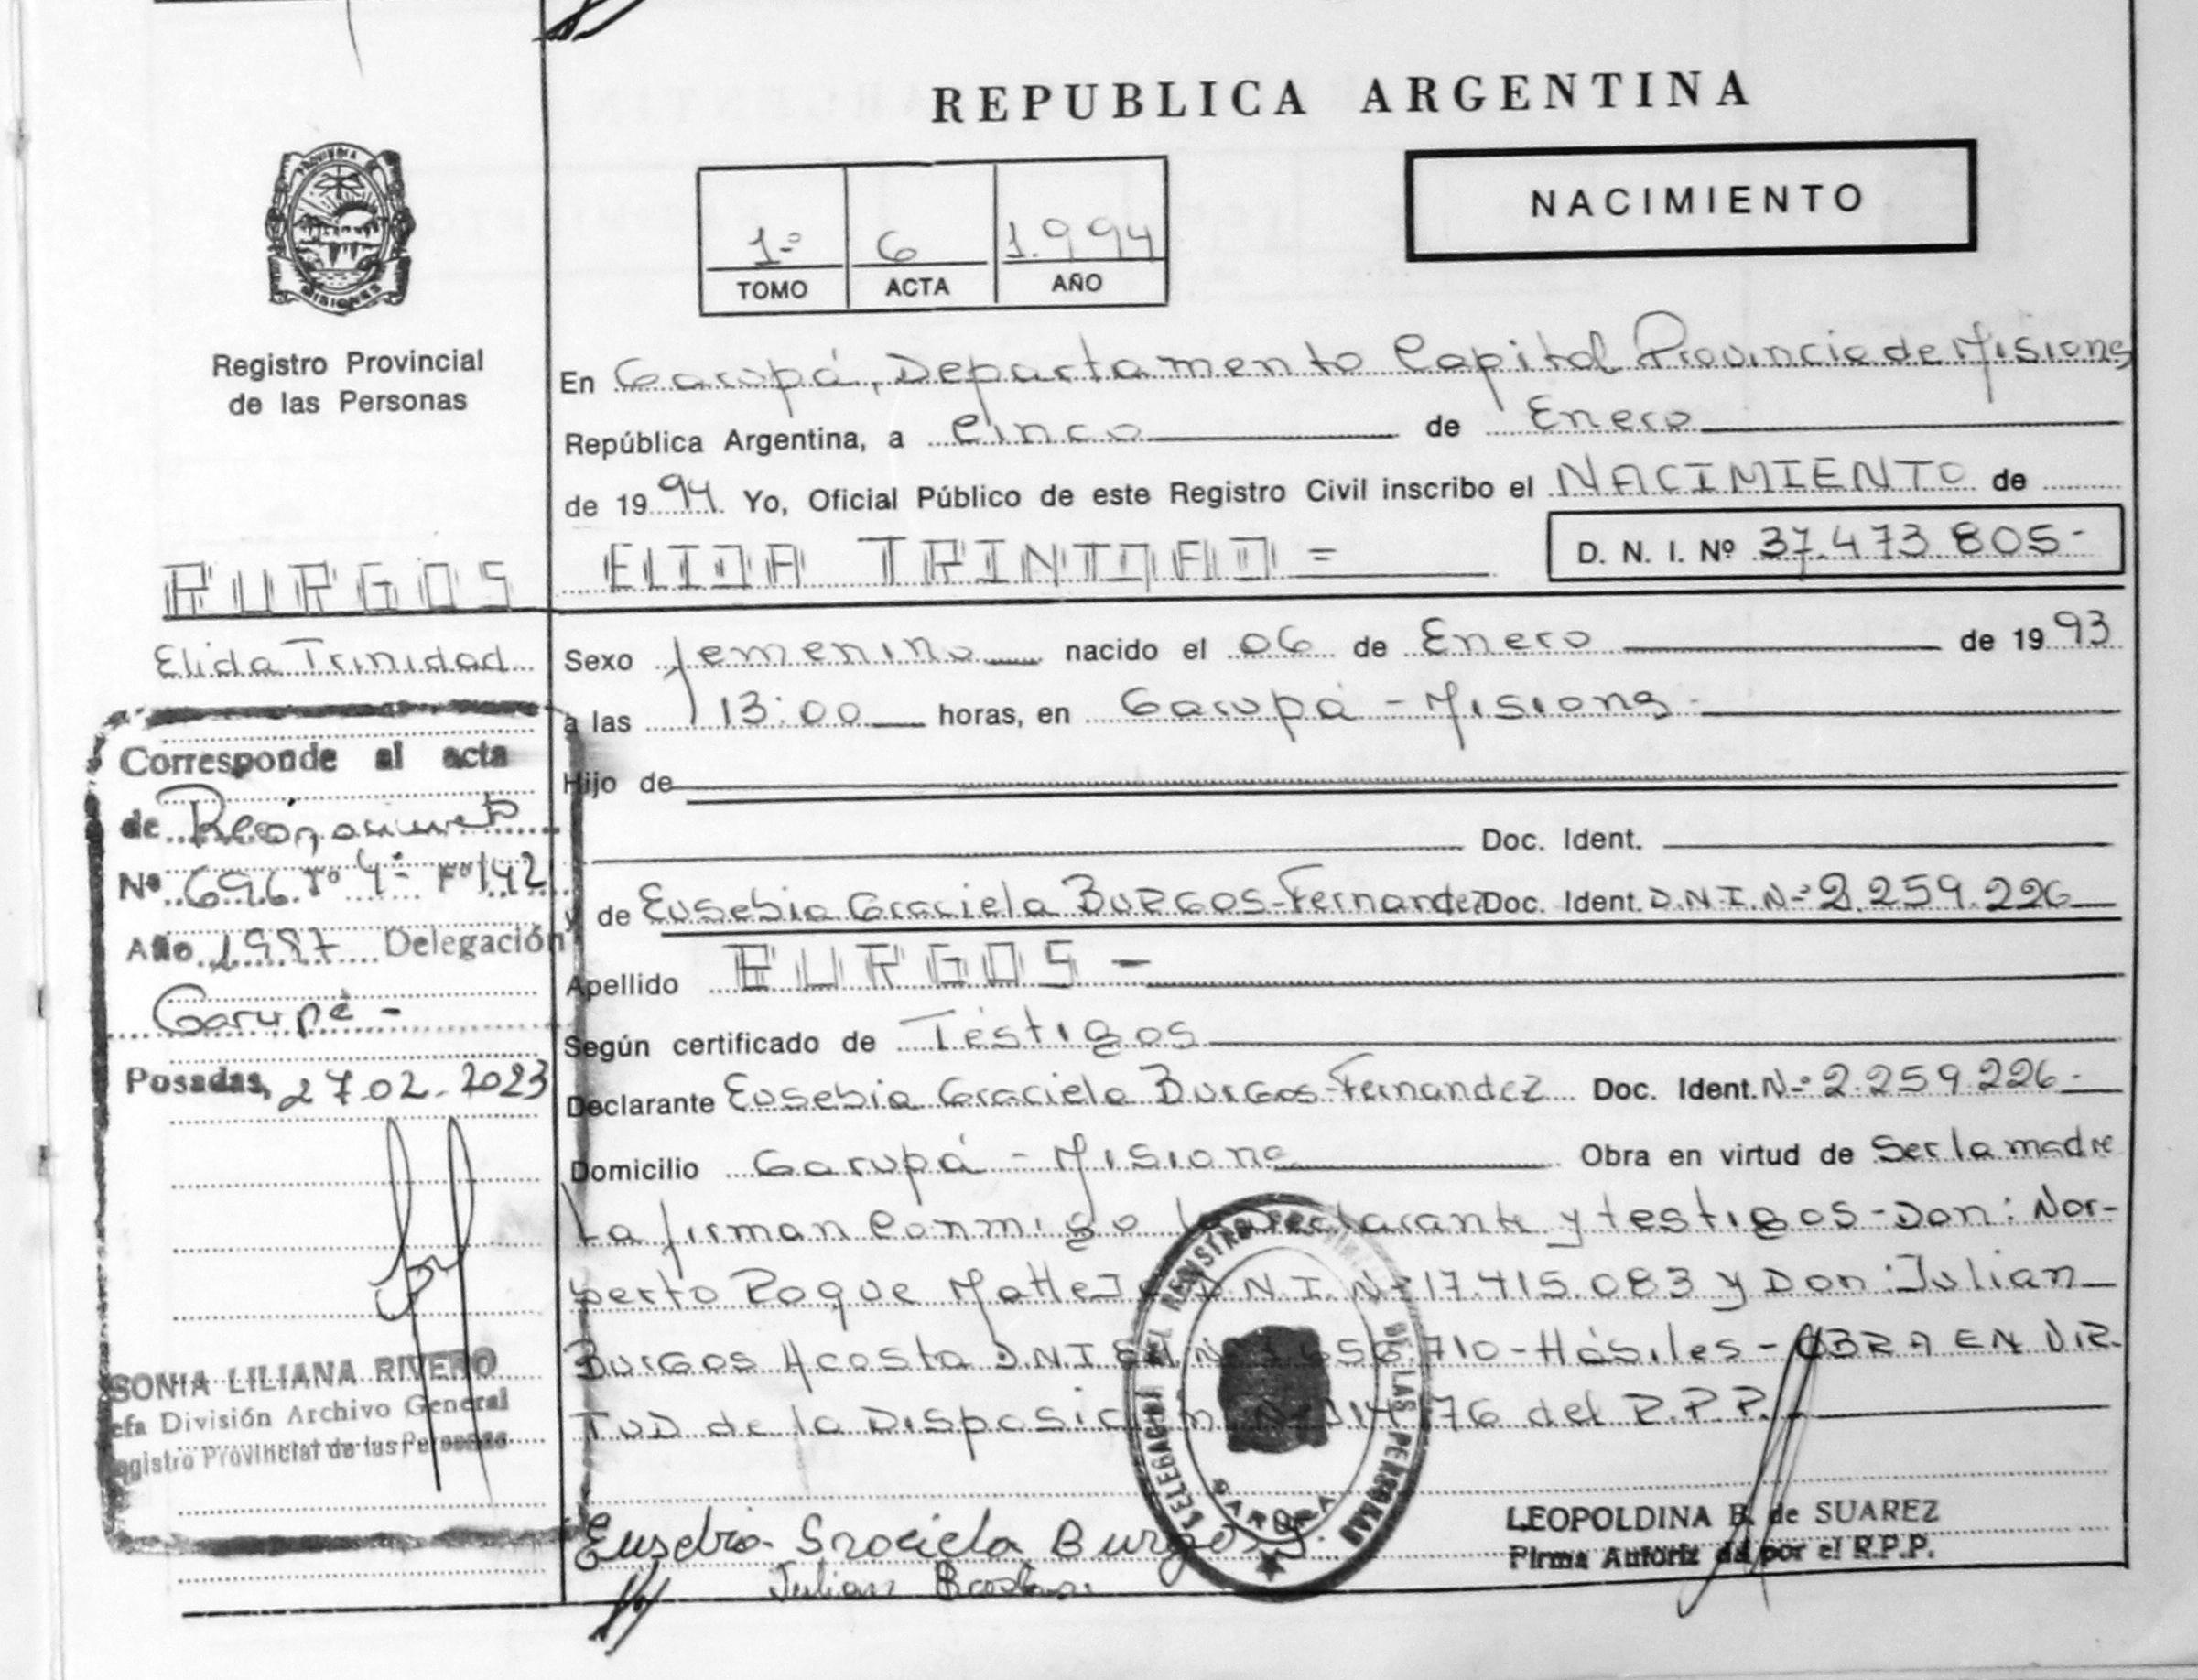 REPUBLICA ARGENTINA
NACIMIENTO
1º 6 1.994
TOMO ACTA AÑO
Registro Provincial
de las Personas
En Garupá, Departamento Capital Provincia de Misiones
República Argentina, a Cinco de Enero
de 1994 Yo, Oficial Público de este Registro Civil inscribo el NACIMIENTO de
ELIDA TRINIDAD =
D. N. I. Nº 37.473.805-
BURGOS
Elida Trinidad
Sexo femenino nacido el 06 de Enero de 1993
a las 13:00 horas, en Garupá - Misiones -
Hijo de
Doc. Ident.
y de Eusebia Graciela BURGOS-Fernandez Doc. Ident. D.N.I.Nº 2.259.226
Apellido BURGOS -
Según certificado de Testigos
Declarante Eusebia Graciela Burgos-Fernandez Doc. Ident. Nº 2.259.226-
Domicilio Garupá - Misiones Obra en virtud de Ser la madre
La firman Conmigo la declarante y testigos - Don: Nor-
berto Roque D.N.I.Nº 17.415.083 y Don: Julian
Burgos Acosta D.N.I. 710 - Hábiles - OBRA EN VIR
TUD de la Disposición Nº 76 del R.P.P.
Corresponde al acta
de Reconocimiento
Nº 696 Tº 4º Fº 142
Año 1997 Delegación
Garupá -
Posadas, 27.02.2023
SONIA LILIANA RIVERO
efa División Archivo General
egistro Provincial de las Personas
DELEGACION DEL REGISTRO PROVINCIAL DE LAS PERSONAS
GARUPA
Eusebia Graciela Burgos
Julian
LEOPOLDINA B. de SUAREZ
Firma Autoriz da por el R.P.P.